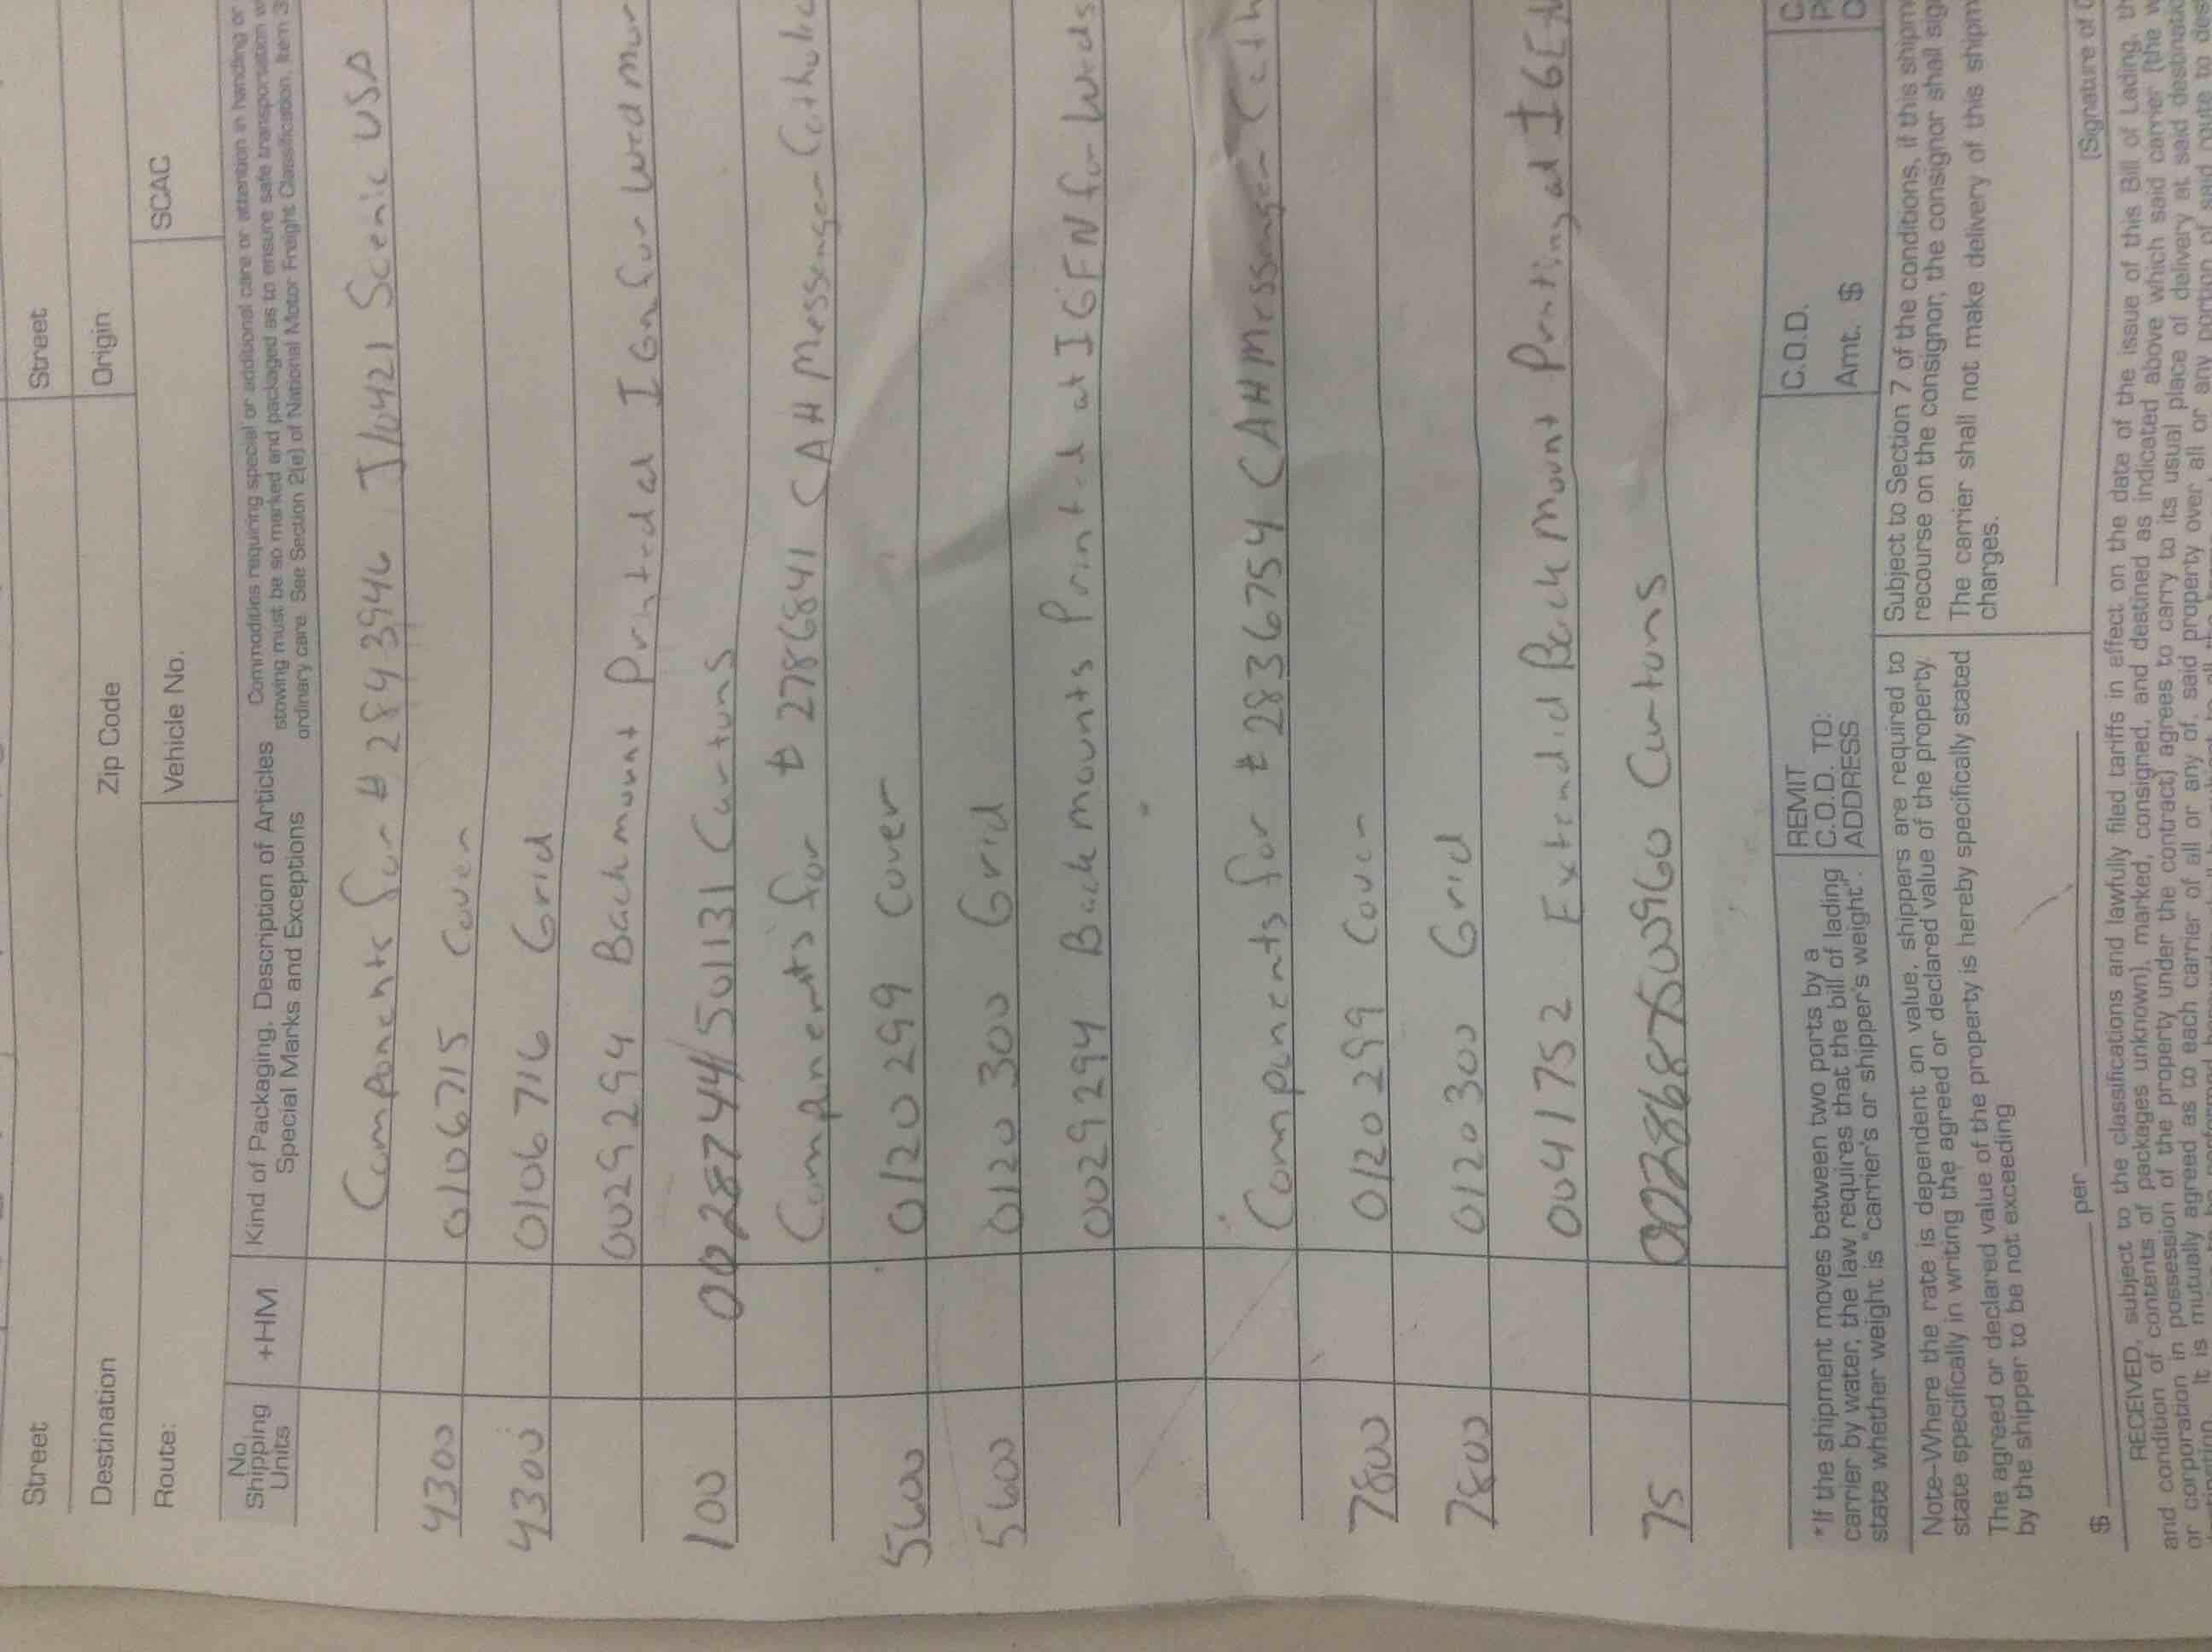 Street Street
Destination Zip Code Origin
Route: Vehicle No. SCAC
No. Shipping Units +HM Kind of Packaging, Description of Articles Special Marks and Exceptions
Commodities requiring special or additional care or attention in handling or
stowing must be so marked and packaged as to ensure safe transportation w
ordinary care. See Section 2(e) of National Motor Freight Classification, Item 3
Components for # 2843946 J/10421 Scenic USA
4300 0106715 Cover
4300 0106716 Grid
0029294 Backmount Printed at IGn for Wed mor
100 00287441/501131 Cartons
Components for # 2786841 CAH Messenger Catholic
5600 0120299 Cover
5600 0120300 Grid
0029294 Backmounts Printed at IGFN for Weds
Components for # 2836754 CAH Messenger Cath
7800 0120299 Cover
7800 0120300 Grid
0041752 Extended Back Mount Printing at IGF
75 Cartons
*If the shipment moves between two ports by a
carrier by water, the law requires that the bill of lading
state whether weight is "carrier's or shipper's weight".
REMIT
C.O.D. TO:
ADDRESS
C.O.D.
Amt. $
Note-Where the rate is dependent on value, shippers are required to
state specifically in writing the agreed or declared value of the property.
The agreed or declared value of the property is hereby specifically stated
by the shipper to be not exceeding
$ per
Subject to Section 7 of the conditions, if this shipm
recourse on the consignor, the consignor shall sig
The carrier shall not make delivery of this shipm
charges.
(Signature of C
RECEIVED, subject to the classifications and lawfully filed tariffs in effect on the date of the issue of this Bill of Lading, th
and condition of contents of packages unknown), marked, consigned, and destined as indicated above which said carrier (the w
or corporation in possession of the property under the contract) agrees to carry to its usual place of delivery at said destinatio
It is mutually agreed as to each carrier of all or any of, said property over all or any portion of said route to des